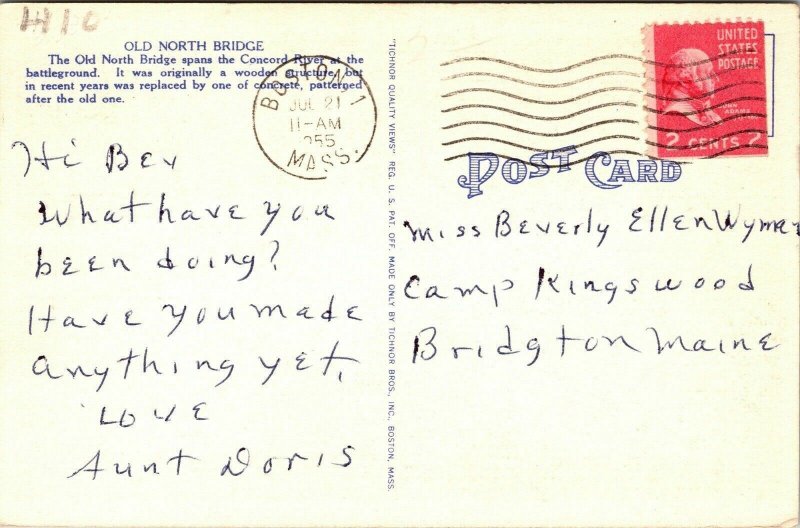 H10
OLD NORTH BRIDGE
The Old North Bridge spans the Concord River at the
battleground. It was originally a wooden structure, but
in recent years was replaced by one of concrete, patterned
after the old one.
BOSTON 1
JUL 21
11-AM
1955
MASS.
UNITED
STATES
POSTAGE
JOHN
ADAMS
2 CENTS 2
POST CARD
Hi Bev
What have you
been doing?
Have you made
anything yet,
LOVE
Aunt Doris
"TICHNOR QUALITY VIEWS" REG. U. S. PAT. OFF. MADE ONLY BY TICHNOR BROS., INC., BOSTON, MASS.
Miss Beverly Ellen Wyman
Camp Kingswood
Bridgton Maine